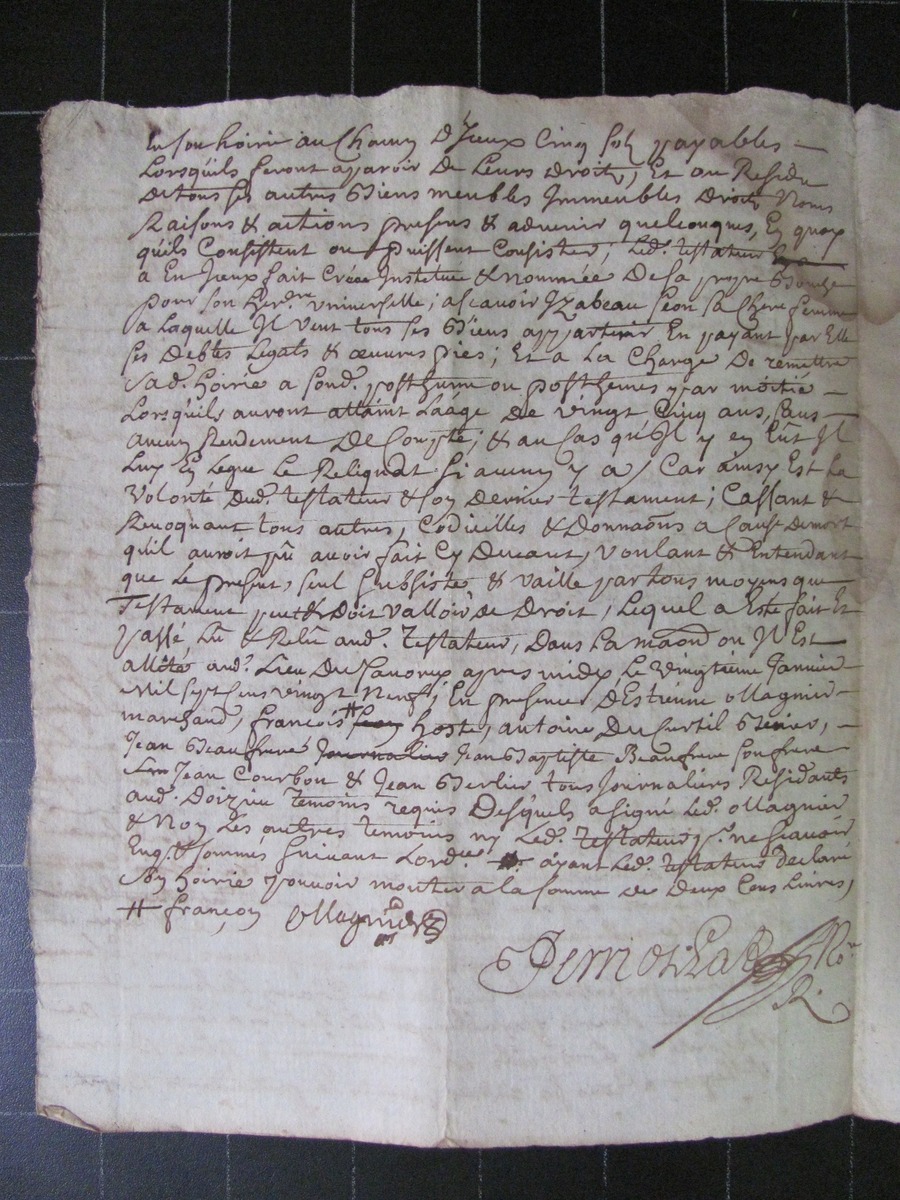 en son hoirie au Chacun D'Jceux Cinq sols payables —
Lorsquils feront apparoir de Leurs droits, Et au Residu
De tous ses autres Biens meubles Jmmeubles Droits Noms
Raisons & actions presens & advenir quelconques, En quoy
quils Consistent ou puissent Consister, Led. testateur
a En Jceux fait Créée Jnstituée & nommée De sa propre Bouche
pour son herre. universelle, ascavoir Jzabeau Seon sa Chere femme
a Laquelle Jl veut tous ses Biens appartenir En payant par Elle
ses Debtes Legats & œuvres pies; Et a La Charge De remettre
sad. hoirie a sond. posthume ou posthumes par moitié —
Lorsquils auront attaint Laâge De vingt Cinq ans, sens —
aucun Rendement De Compte; & au Cas qu'Jl y en Eût Jl
Luy En Legue Le Reliquat si aucun y a / Car ainsy Est La
volonté Dud. testateur & son Dernier testament; Cassant &
Revoquant tous autres, Codicilles & Donnaōns a Cause Demort
quil auroit pû avoir fait Cy Devant, voulant & Entendant
que Le present, seul subsiste & vaille par tous moyens que
Testament peut & Doit valloir De Droit, Lequel a Esté fait Et
passé, Lû & Relû aud. Testateur, Dans La maōn ou Jl Est
allité aud. Lieu Du apres midy Le vingtieme Janvier
Mil sept Cens vingt Neuf; En presence D'Estienne ollagnier —
marchand, François # hoste, antoine Du Curtil , —
Jean Beaufrere Journalier Jean Baptiste Beaufrere son frere
Jean Courbon & Jean Berlier tous Journaliers Residants
aud. Doizieu temoins requis Desquels a signé Led. ollagnier
& Non Les autres temoins ny Led. testateur pr. ne scavoir
Enq. & sommés suivant Lordce. ayant Led. testateur Declaré
son hoirie pouvoir monter a la somme de Deux Cens Livres,
# françois ollagnier
No.re
R.